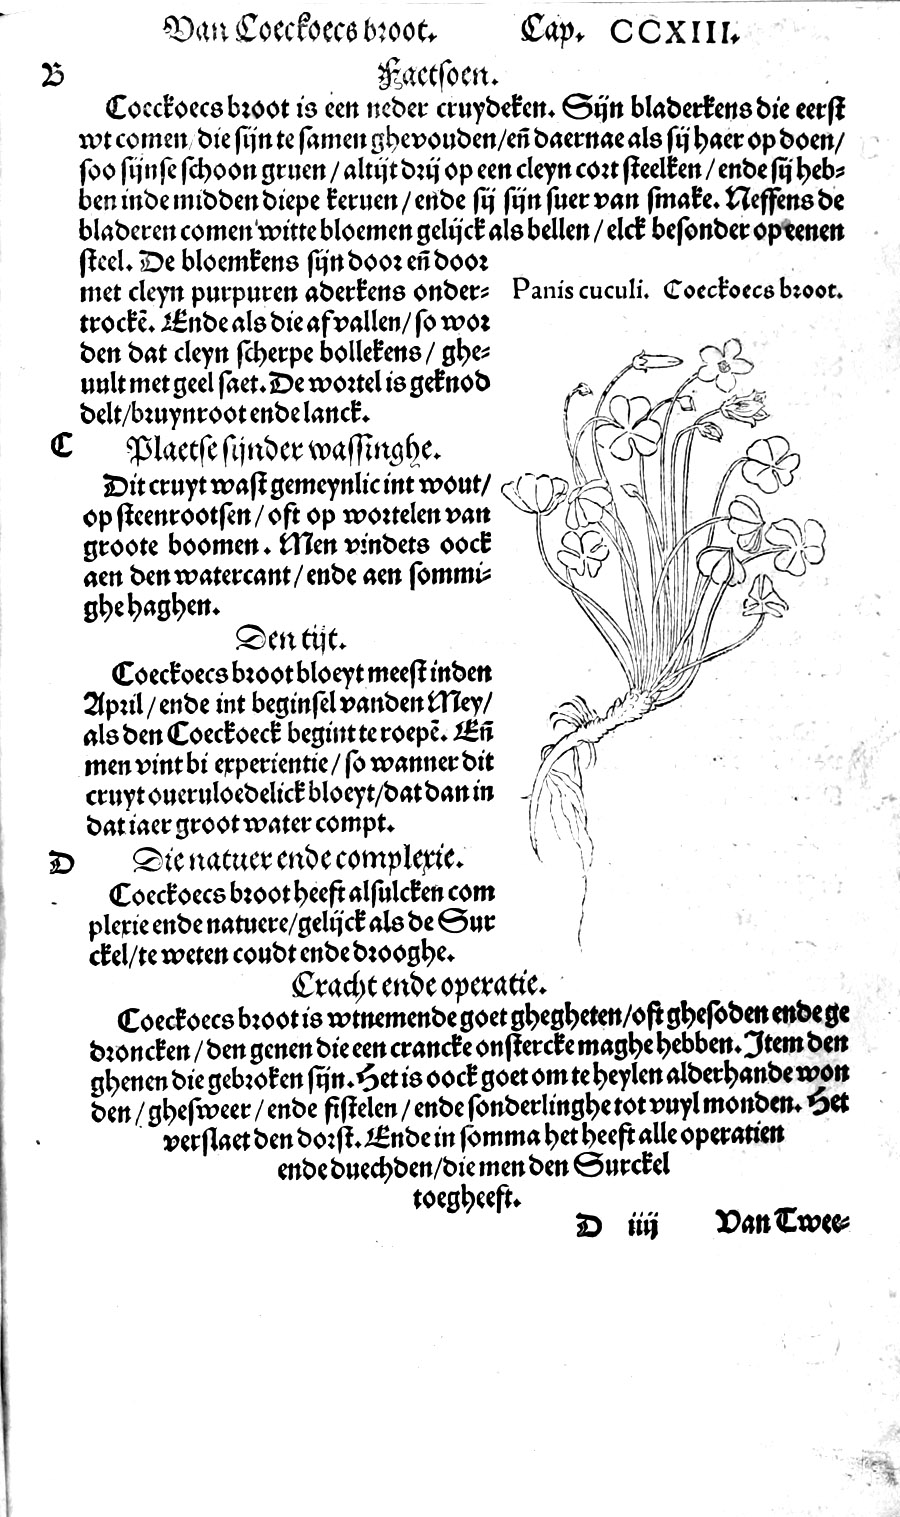 Van Coeckoecs broot. Cap. CCXIII.
B Faetsoen.
Coeckoecs broot is een neder cruydeken. Sijn bladerkens die eerst
wt comen/ die sijn te samen ghevouden/ en̄ daernae als sij haer op doen/
soo sijnse schoon gruen/ altijt drij op een cleyn cort steelken/ ende sij heb-
ben inde midden diepe keruen/ ende sij sijn suer van smake. Neffens de
bladeren comen witte bloemen gelijck als bellen/ elck besonder op eenen
steel. De bloemkens sijn door en̄ door
met cleyn purpuren aderkens onder-
trockē. Ende als die af vallen/ so wor
den dat cleyn scherpe bollekens/ ghe-
uult met geel saet. De wortel is geknod
delt/ bruynroot ende lanck.
Panis cuculi. Coeckoecs broot.
C Plaetse sijnder wassinghe.
Dit cruyt wast gemeynlic int wout/
op steenrootsen/ oft op wortelen van
groote boomen. Men vindets oock
aen den watercant/ ende aen sommi-
ghe haghen.
Den tijt.
Coeckoecs broot bloeyt meest inden
April/ ende int beginsel vanden Mey/
als den Coeckoeck begint te roepē. En̄
men vint bi experientie/ so wanner dit
cruyt oueruloedelick bloeyt/ dat dan in
dat iaer groot water compt.
D Die natuer ende complexie.
Coeckoecs broot heeft alsulcken com
plexie ende natuere/ gelijck als de Sur
ckel/ te weten coudt ende drooghe.
Cracht ende operatie.
Coeckoecs broot is wtnemende goet ghegheten/ oft ghesoden ende ge
droncken/ den genen die een crancke onstercke maghe hebben. Item den
ghenen die gebroken sijn. Het is oock goet om te heylen alderhande won
den/ ghesweer/ ende fistelen/ ende sonderlinghe tot vuyl monden. Het
verslaet den dorst. Ende in somma het heeft alle operatien
ende duechden/ die men den Surckel
toegheeft.
D iiij Van Twee-